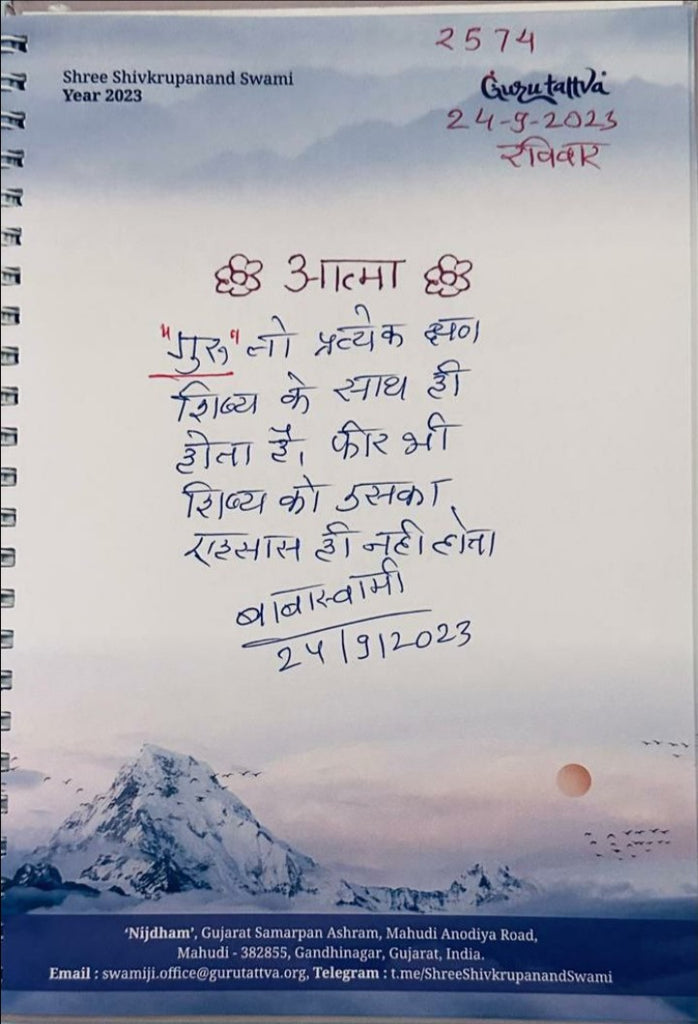 2574
Shree Shivkrupanand Swami
Year 2023
Gurutattva
24-9-2023
रविवार
ૐ आत्मा ૐ
"गुरु" तो प्रत्येक क्षण
शिष्य के साथ ही
होता है, फीर भी
शिष्य को उसका
एहसास ही नही होता
बाबास्वामी
24/9/2023
'Nijdham', Gujarat Samarpan Ashram, Mahudi Anodiya Road,
Mahudi - 382855, Gandhinagar, Gujarat, India.
Email : swamiji.office@gurutattva.org, Telegram : t.me/ShreeShivkrupanandSwami